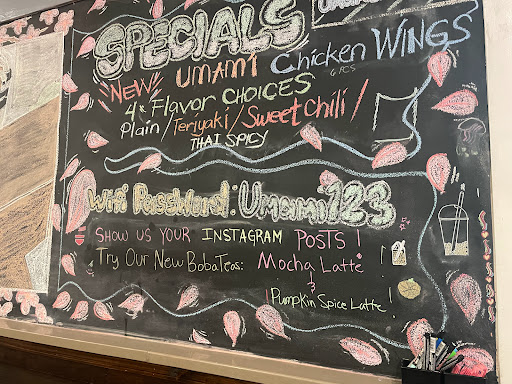 SPECIALS
NEW! UMAMI Chicken WINGS
6 PCS
4x Flavor CHOICES
Plain / Teriyaki / Sweet Chili /
THAI SPICY
Wifi Password: Umami123
SHOW US YOUR INSTAGRAM POSTS!
Try Our New Boba Teas: Mocha Latte
&
! Pumpkin Spice Latte !